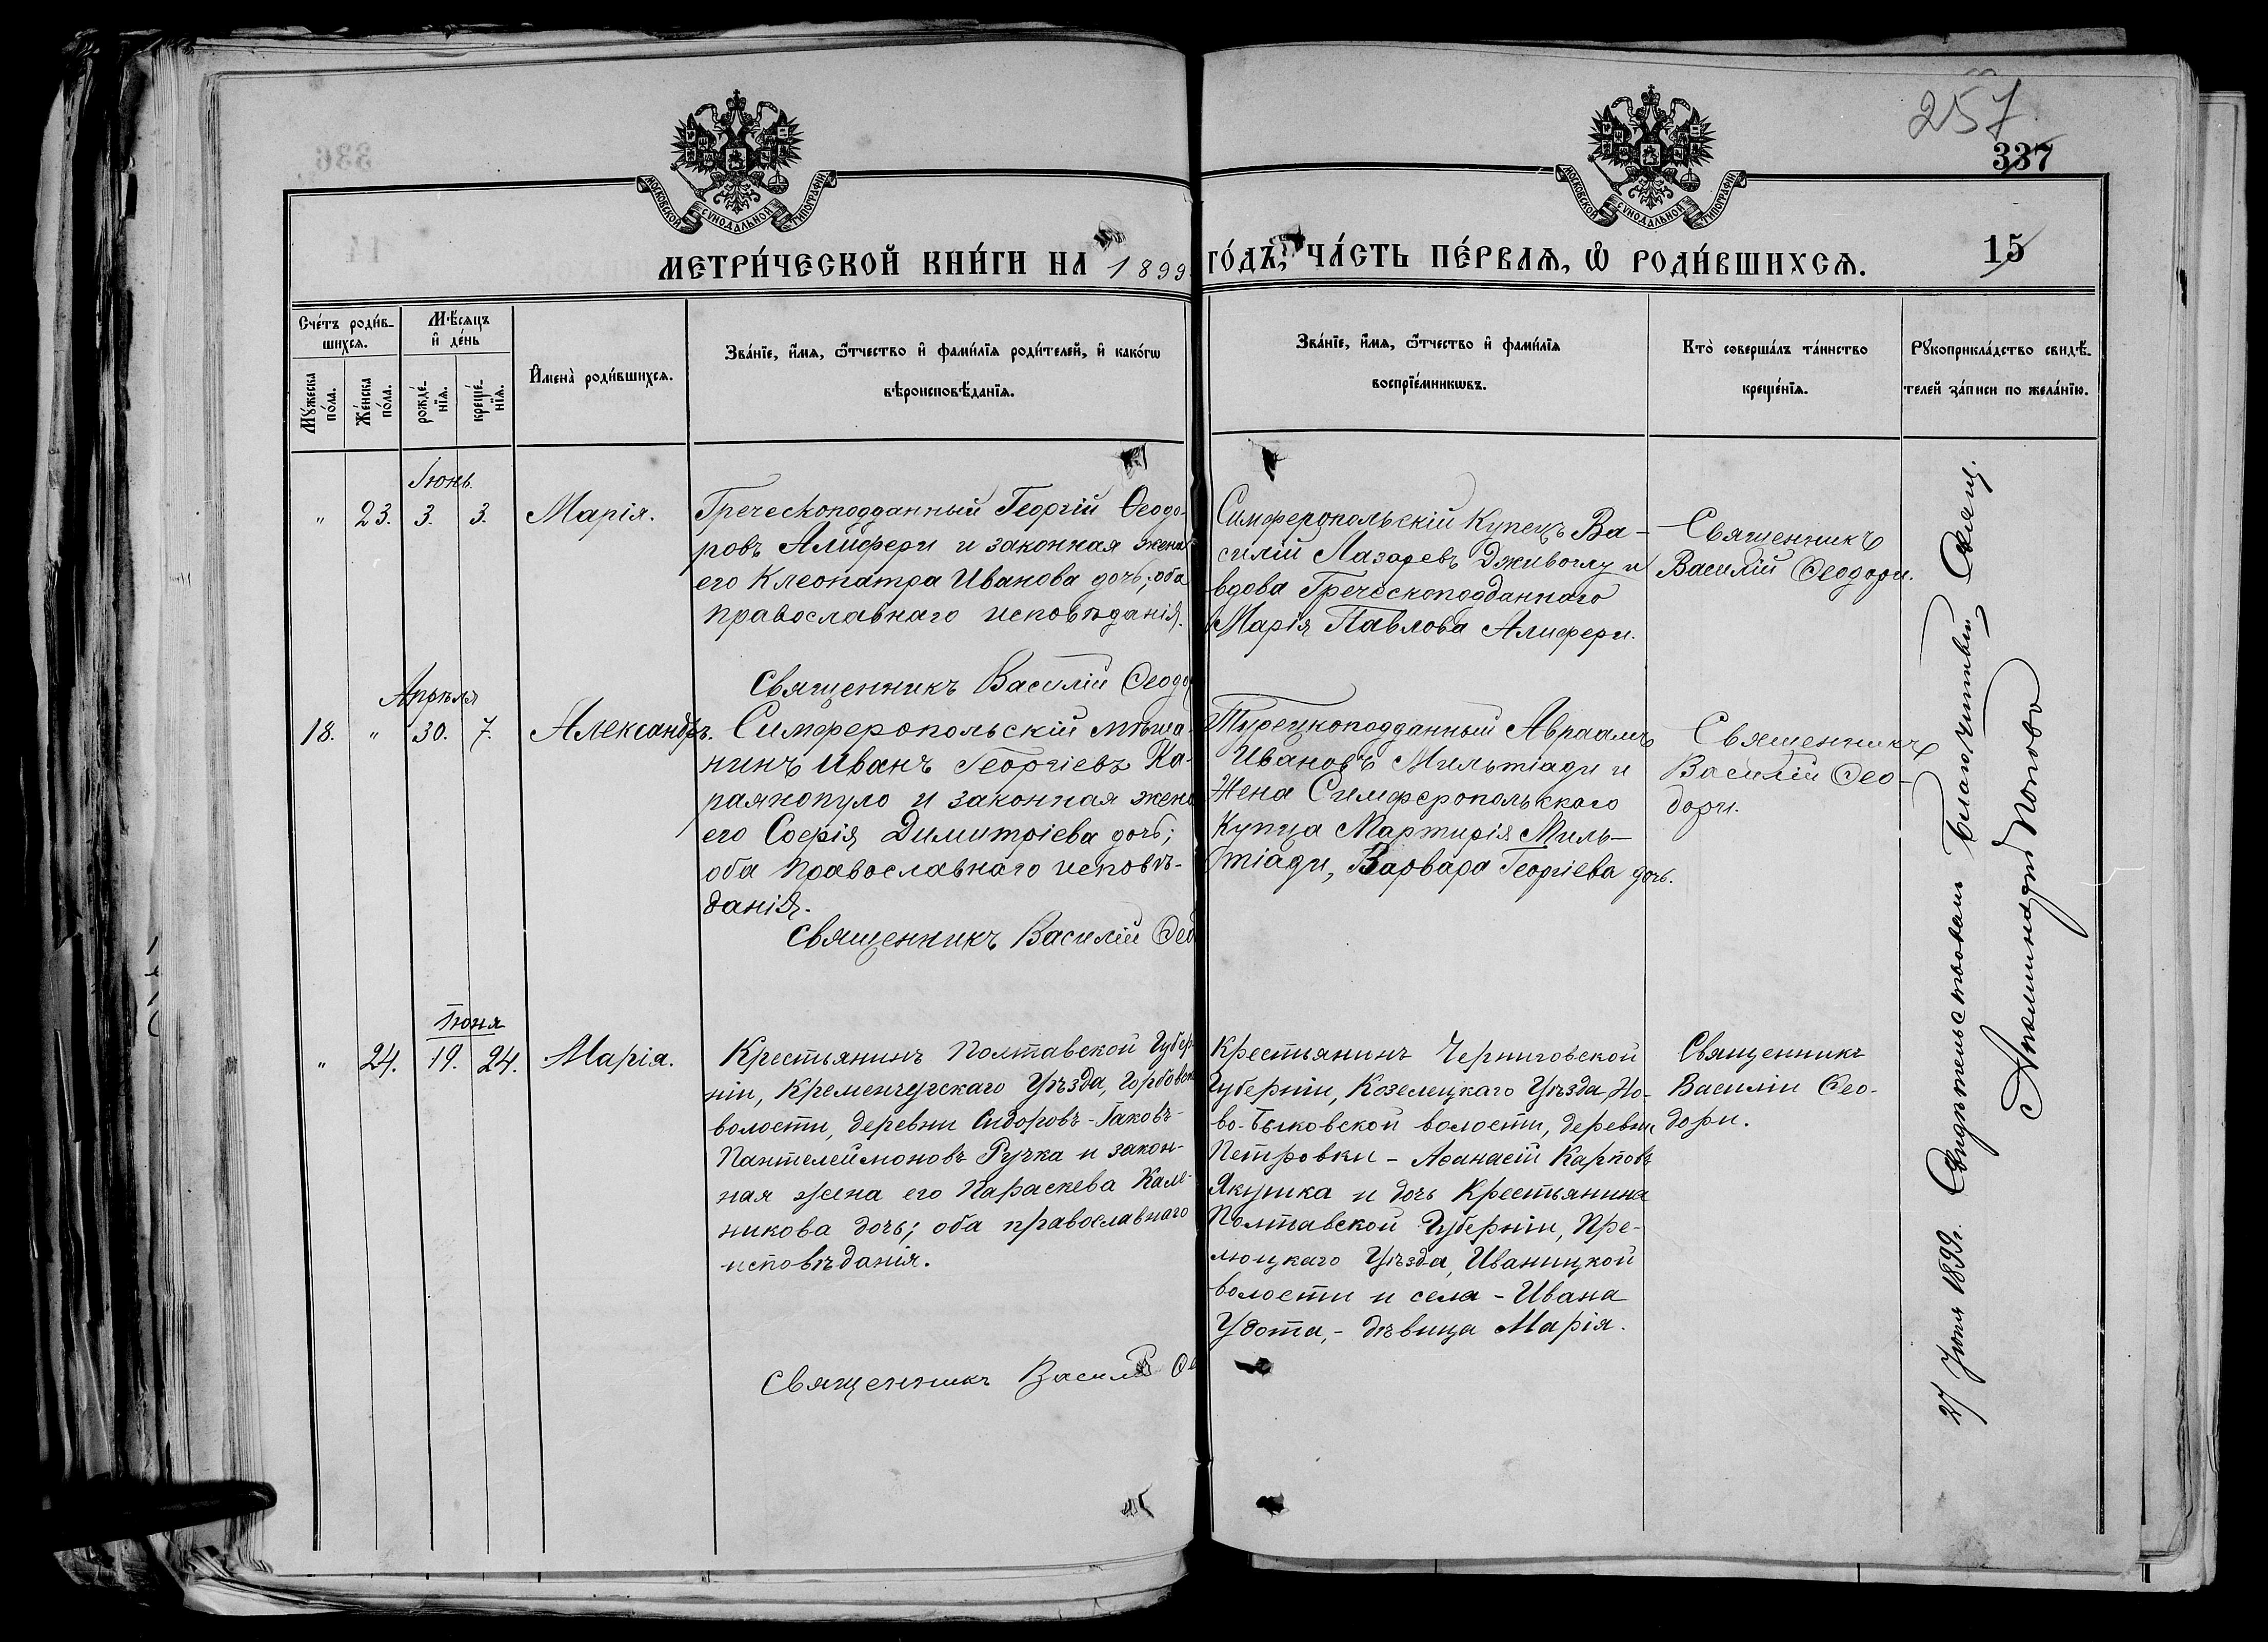 257
337
МОСКОВСКОЙ СѴНОДАЛЬНОЙ ТИПОГРАФІИ
МОСКОВСКОЙ СѴНОДАЛЬНОЙ ТИПОГРАФІИ
МЕТРИ́ЧЕСКОЙ КНИ́ГИ НА 1899 ГО́ДЪ, ЧА́СТЬ ПЕ́РВАѦ, Ѡ҆ РОДИ́ВШИХСѦ.
15
Сче́тъ роди́в-
шихсѧ.
Мꙋ́жеска
по́ла.
Же́нска
по́ла.
Мѣ́сѧцъ
и҆ де́нь
рожде́-
нїѧ.
креще́-
нїѧ.
И҆мена̀ роди́вшихсѧ.
Зва́нїе, и҆́мѧ, ѻ҆́тчество и҆ фами́лїѧ роди́телей, и҆ како́гѡ
вѣроисповѣ́данїѧ.
Зва́нїе, и҆́мѧ, ѻ҆́тчество и҆ фами́лїѧ
воспрїе́мникѡвъ.
Кто̀ соверша́лъ та́инство
креще́нїѧ.
Рꙋкоприкла́дство свидѣ́-
телей за́писи по жела́нїю.
Іюнь.
" 23. 3. 3. Марія.
Греческоподданный Георгій Ѳеодо-
ровъ Алифери и законная жена
его Клеопатра Иванова дочь, оба
православнаго исповѣданія.
Священникъ Василій Ѳеодо
Симферопольскій Купецъ Ва-
силій Лазаревъ Дживоглу и
вдова Греческоподданнаго
Марія Павлова Алифери.
Священникъ
Василій Ѳеодори.
Апрѣля
18. " 30. 7. Александръ.
Симферопольскій мѣща-
нинъ Иванъ Георгіевъ Ка-
раянопуло и законная жена
его Софія Димитріева дочь;
оба православнаго исповѣ-
данія.
Священникъ Василій Ѳео
Турецкоподданный Авраамъ
Ивановъ Мильтіади и
Жена Симферопольскаго
Купца Мартирія Миль-
тіади, Варвара Георгіева дочь.
Священникъ
Василій Ѳео-
дори.
Іюня
" 24. 19. 24. Марія.
Крестьянинъ Полтавской Губер
ніи, Кременчугскаго Уѣзда, Горбовск
волости, деревни Сидоровъ-Іаковъ-
Пантелеймоновъ Ручка и закон-
ная жена его Параскева Кале-
никова дочь; оба православнаго
исповѣданія.
Священникъ Васил Ѳе
Крестьянинъ Черниговской
Губерніи, Козелецкаго Уѣзда, Но-
во-Быковской волости, деревни
Петровки - Аѳанасій Карповъ
Якушка и дочь Крестьянина
Полтавской Губерніи, Пре-
люцкаго Уѣзда, Иваницкой
волости и села - Ивана
Удота, - дѣвица Марія.
Священникъ
Василій Ѳео-
дори.
27 Іюня 1899г. Свидѣтельствовалъ Благочинный Свящ.
Попово